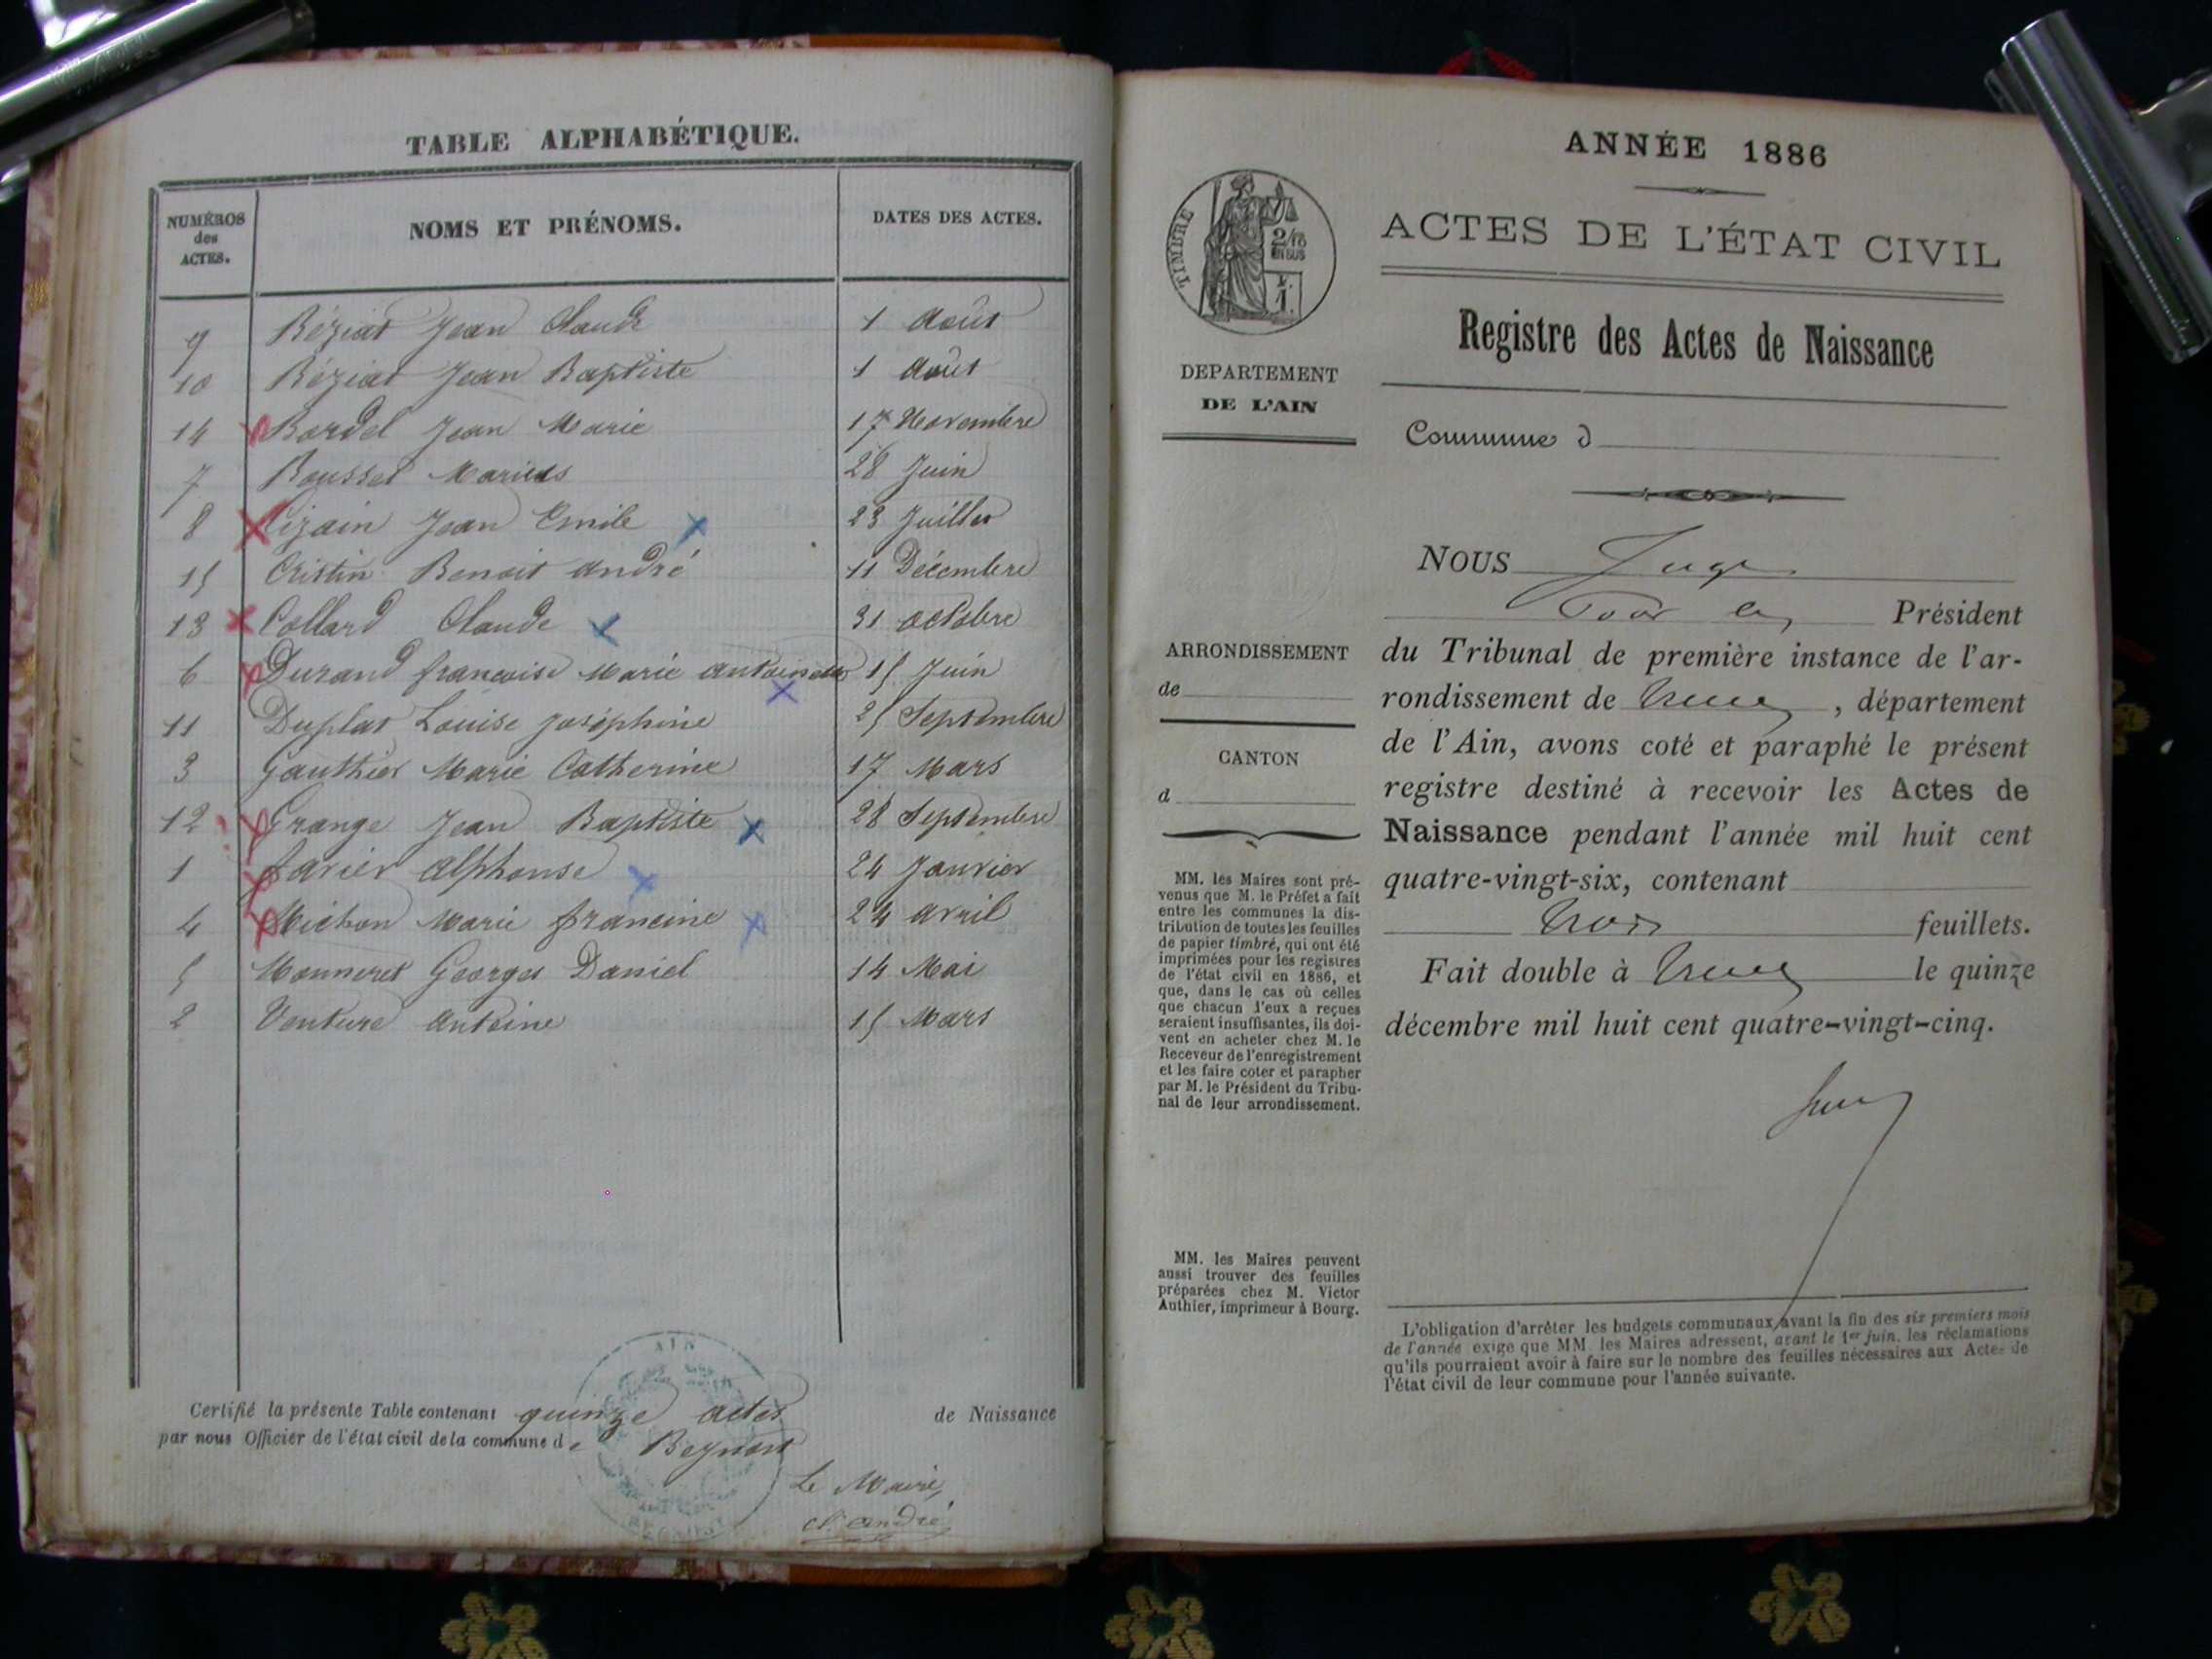 TABLE ALPHABÉTIQUE.
NUMÉROS des ACTES.
NOMS ET PRÉNOMS.
DATES DES ACTES.
9 Béziat Jean Claude 1 Août
10 Béziat Jean Baptiste 1 Août
14 Bordel Jean Marie 17 Novembre
7 Bousset Marius 28 Juin
8 Cizain Jean Emile 23 Juillet
15 Cristin Benoit André 11 Décembre
13 Collard Claude 31 octobre
6 Durand françoise Marie antoinette 15 Juin
11 Duplat Louise Joséphine 25 Septembre
3 Gauthier Marie Catherine 17 Mars
12 Grange Jean Baptiste 28 Septembre
1 Javier Alphonse 24 Janvier
4 Michon Marie francine 24 avril
5 Monneret Georges Daniel 14 Mai
2 Venture Antoine 15 Mars
AIN
Certifié la présente Table contenant quinze actes de Naissance
par nous Officier de l'état civil de la commune de Beynost
Le Maire,
cl. André
ANNÉE 1886
TIMBRE
2/10
EN SUS
ACTES DE L'ÉTAT CIVIL
Registre des Actes de Naissance
DEPARTEMENT
DE L'AIN
Commune d
NOUS Juge
Pour le Président
ARRONDISSEMENT
de
CANTON
d
du Tribunal de première instance de l'ar-
rondissement de Trévoux, département
de l'Ain, avons coté et paraphé le présent
registre destiné à recevoir les Actes de
Naissance pendant l'année mil huit cent
quatre-vingt-six, contenant
trois feuillets.
Fait double à Trévoux le quinze
décembre mil huit cent quatre-vingt-cinq.
MM. les Maires sont pré-
venus que M. le Préfet a fait
entre les communes la dis-
tribution de toutes les feuilles
de papier timbré, qui ont été
imprimées pour les registres
de l'état civil en 1886, et
que, dans le cas où celles
que chacun d'eux a reçues
seraient insuffisantes, ils doi-
vent en acheter chez M. le
Receveur de l'enregistrement
et les faire coter et parapher
par M. le Président du Tribu-
nal de leur arrondissement.
MM. les Maires peuvent
aussi trouver des feuilles
préparées chez M. Victor
Authier, imprimeur à Bourg.
L'obligation d'arrêter les budgets communaux avant la fin des six premiers mois
de l'année exige que MM. les Maires adressent, avant le 1er juin, les réclamations
qu'ils pourraient avoir à faire sur le nombre des feuilles nécessaires aux Actes de
l'état civil de leur commune pour l'année suivante.